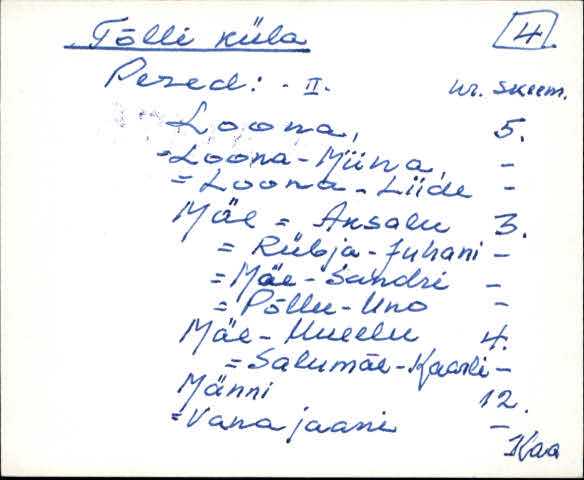 Tõlli küla 4.
Pered: - II. nr. skeem.
Loona, 5.
= Loona - Miina, -
= Loona - Liide -
Mäe = Aksalu 3.
= Rübja - Juhani -
= Mäe - Sandri -
= Põllu - Uno -
Mäe - 4.
= Salumäe - Kaarli -
Männi 12.
= Vana jaani -
Kaa